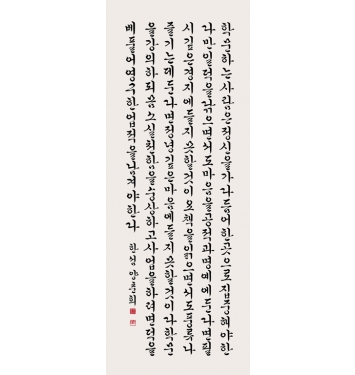 학문하는사람은정신을가다듬어한곳으로집중해야한
다만일덕을닦으면서도마음을공적과명예에둔다면필
시깊은경지에들지못할것이오책을읽으면서도풍류나
즐기는데둔다면정녕깊은마음에들지못할것이다학문
을강의하되몸소실천함을숭상하고사업을하려면덕을
베풀어영구한업적을남겨야한다